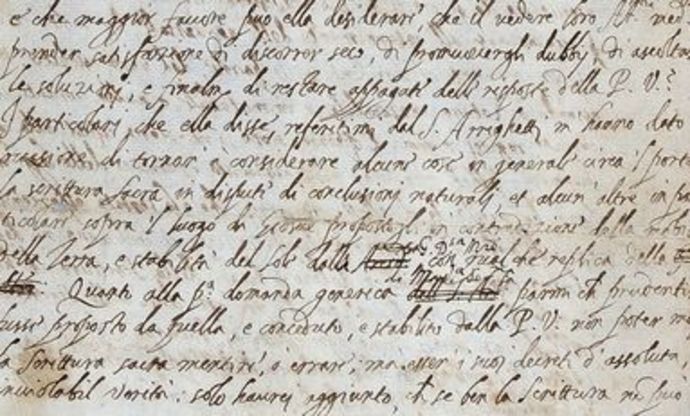 e che maggior favore può ella desiderare che il vedere loro Alt.
prender satisfazzione di discorrer seco, di promuovergli dubbij, di ascoltar
le soluzioni, e finalm. di restare appagate delle risposte della P. V.?
I particolari, che ella disse, referitimi dal S. Arrighetti, m hanno dato
di tornar' a considerare alcune cose in generale circa 'l port
la scrittura sacra in dispute di conclusioni naturali, et alcun' altre in
ticolari sopra 'l luogo di Giosuè propostogli in contradizione della mob
della Terra, e stabilità del Sole dalla G. D.sa M.re con qualche replica della
Quanto alla p.a domanda generica di Mad.a parmi ch prudenti
fusse proposto da quella, e conceduto, e stabilito dalla P. V. non poter ma
la scrittura sacra mentire, o errare, ma esser i suoi decreti d'assoluta,
inviolabil verità: solo haurei aggiunto, ch se ben la Scrittura non può